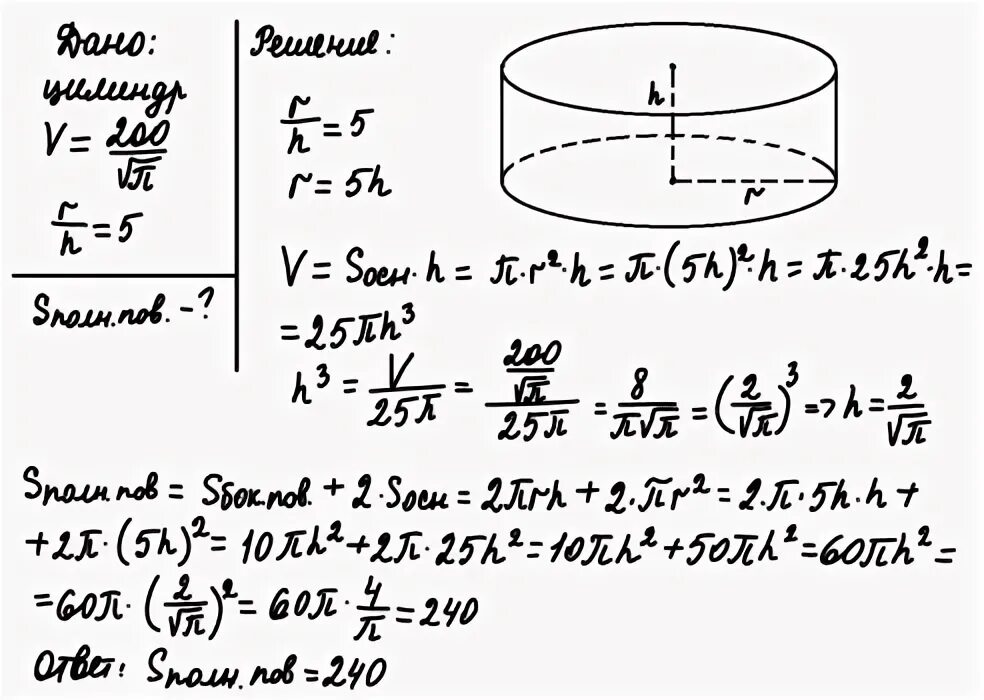 Дано:
цилиндр
V = 200/√π
r/h = 5
Sполн.пов. - ?
Решение:
r/h = 5
r = 5h
h
r
V = Sосн · h = π · r² · h = π · (5h)² · h = π · 25h² · h =
= 25πh³
h³ = V/25π = (200/√π)/25π = 8/π√π = (2/√π)³ => h = 2/√π
Sполн.пов = Sбок.пов. + 2 · Sосн = 2πrh + 2 · πr² = 2 · π · 5h · h +
+ 2π · (5h)² = 10πh² + 2π · 25h² = 10πh² + 50πh² = 60πh² =
= 60π · (2/√π)² = 60π · 4/π = 240
Ответ: Sполн.пов = 240